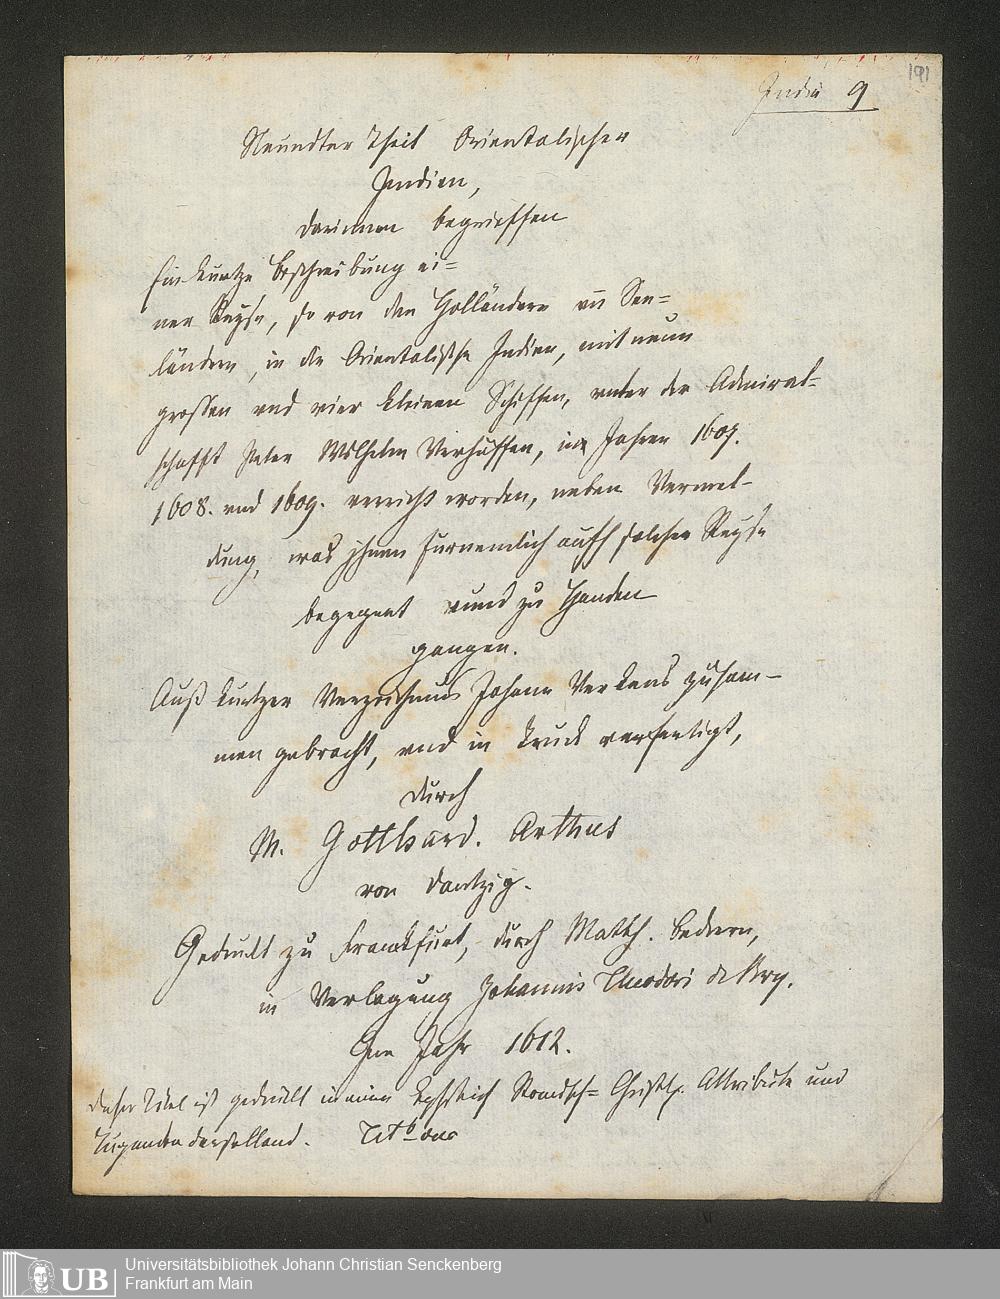 191
India 9
Neundter Theil Orientalischer
Indien,
Darinnen begrieffen
Ein kurtze Beschreibung ei=
ner Reyse, so von den Holländern vñ See=
ländern, in die Orientalische Indien, mit neun
grossen vnd vier kleinen Schiffen, vnter der Admiral=
schafft Peter Wilhelm Verhuffen, in Jahren 1607.
1608. vnd 1609. verricht worden, neben Vermel-
dung, was jhnen fürnemlich auff solcher Reyse
begegnet vnnd zu Handen
gangen.
Auß kurtzer Verzeichnuß Johann Verkens zusam-
men gebracht, vnd in Truck verfertigt,
durch
M. Gotthard. Arthus
von Dantzig.
Gedruckt zu Franckfurt, durch Matth. Beckern,
in Verlegung Johannis Theodori de Bry.
Im Jahr 1612.
Dieser Titel ist gedruckt in einem Kupferstich Attribute und
Tugenden darstellend.
UB
Universitätsbibliothek Johann Christian Senckenberg
Frankfurt am Main